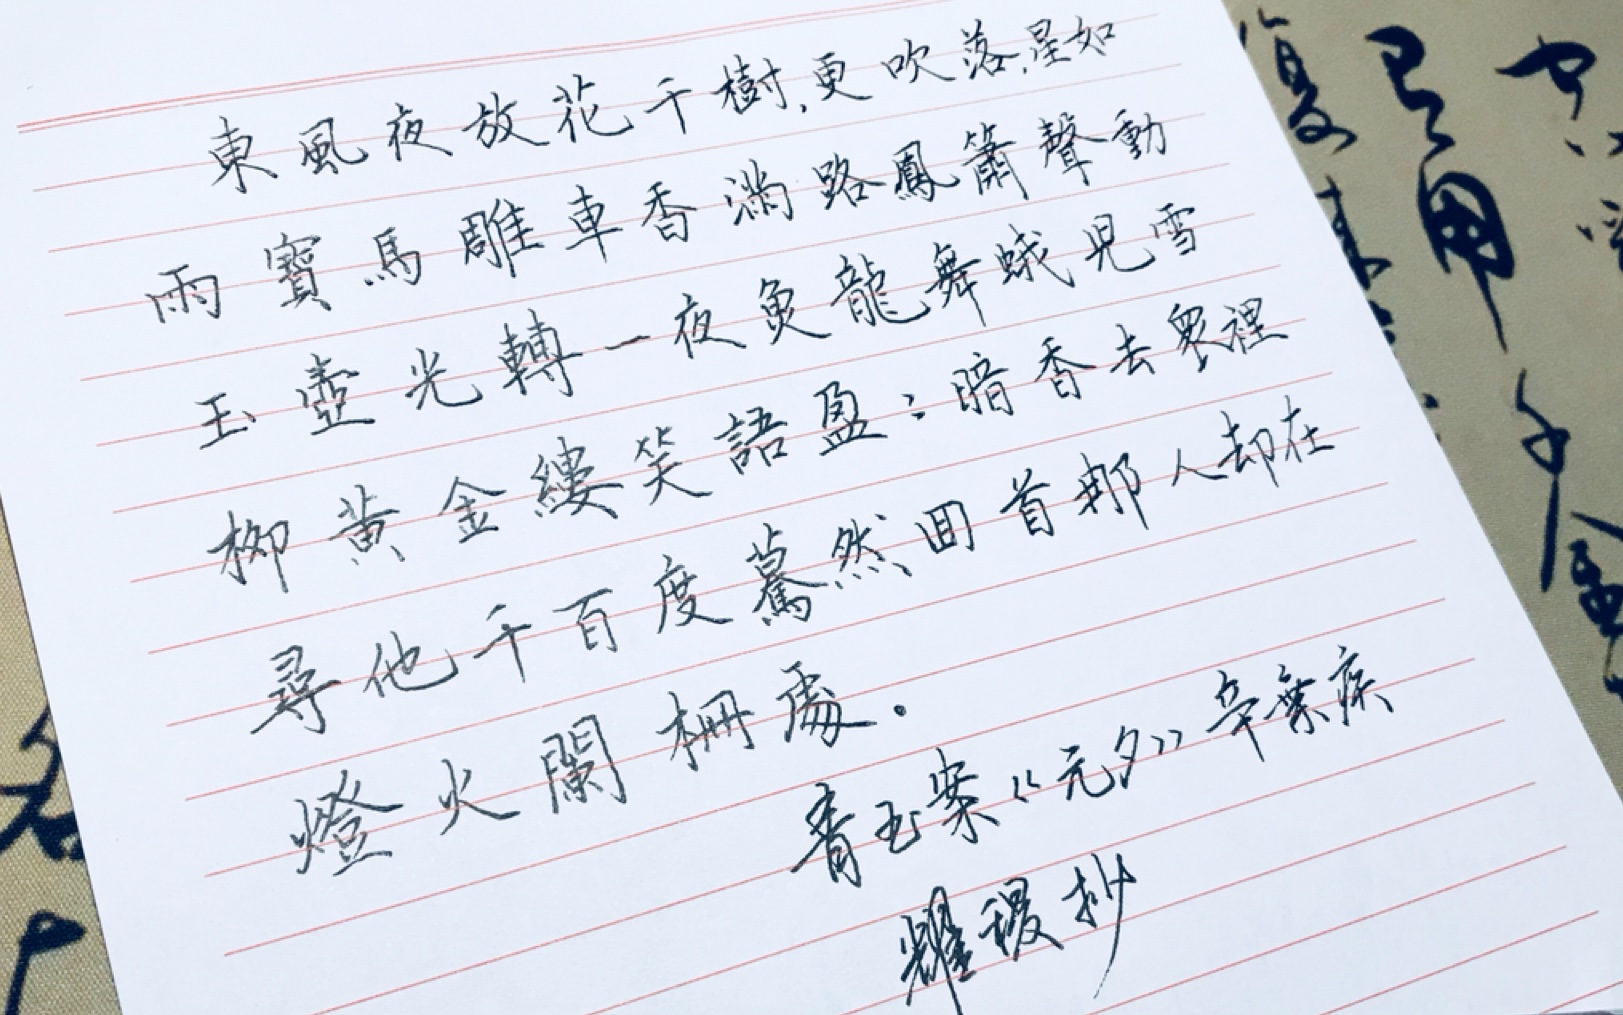 東風夜放花千樹,更吹落,星如
雨寶馬雕車香滿路鳳簫聲動
玉壺光轉一夜魚龍舞蛾兒雪
柳黃金縷笑語盈:暗香去衆裡
尋他千百度驀然回首那人却在
燈火闌柵處。
青玉案《元夕》辛棄疾
耀稷抄